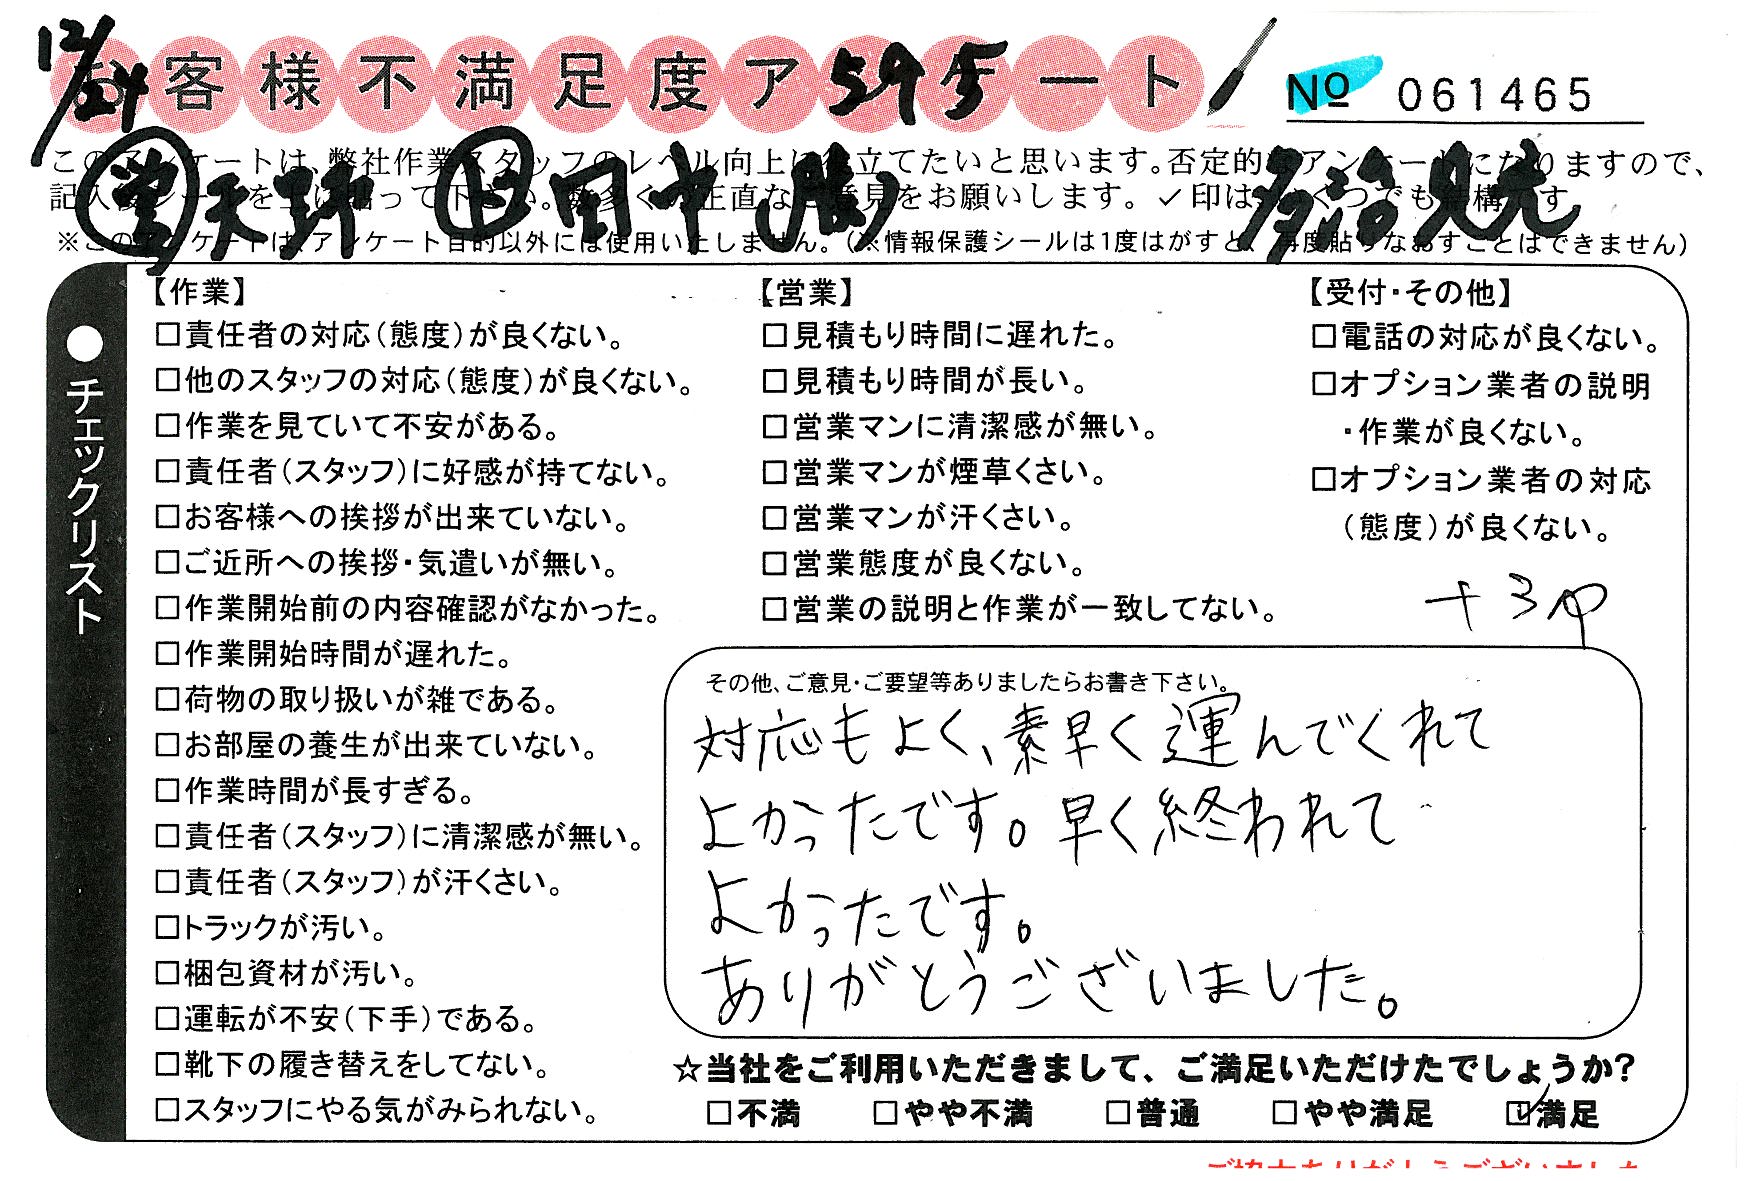 12/24
お客様不満足度アンケート
595
No 061465
このアンケートは、弊社作業スタッフのレベル向上に役立てたいと思います。否定的なアンケートになりますので、
記入後シールを上に貼って下さい。数多くの正直なご意見をお願いします。✓印はいくつでも結構です
※このアンケートは、アンケート目的以外には使用いたしません。(※情報保護シールは1度はがすと、再度貼りなおすことはできません)
営 天野
田中
●チェックリスト
【作業】
□責任者の対応(態度)が良くない。
□他のスタッフの対応(態度)が良くない。
□作業を見ていて不安がある。
□責任者(スタッフ)に好感が持てない。
□お客様への挨拶が出来ていない。
□ご近所への挨拶・気遣いが無い。
□作業開始前の内容確認がなかった。
□作業開始時間が遅れた。
□荷物の取り扱いが雑である。
□お部屋の養生が出来ていない。
□作業時間が長すぎる。
□責任者(スタッフ)に清潔感が無い。
□責任者(スタッフ)が汗くさい。
□トラックが汚い。
□梱包資材が汚い。
□運転が不安(下手)である。
□靴下の履き替えをしてない。
□スタッフにやる気がみられない。
【営業】
□見積もり時間に遅れた。
□見積もり時間が長い。
□営業マンに清潔感が無い。
□営業マンが煙草くさい。
□営業マンが汗くさい。
□営業態度が良くない。
□営業の説明と作業が一致してない。
【受付・その他】
□電話の対応が良くない。
□オプション業者の説明
・作業が良くない。
□オプション業者の対応
(態度)が良くない。
+3P
その他、ご意見・ご要望等ありましたらお書き下さい。
対応もよく、素早く運んでくれて
よかったです。早く終われて
よかったです。
ありがとうございました。
☆当社をご利用いただきまして、ご満足いただけたでしょうか?
□不満 □やや不満 □普通 □やや満足 ☑満足
ご協力ありがとうございました